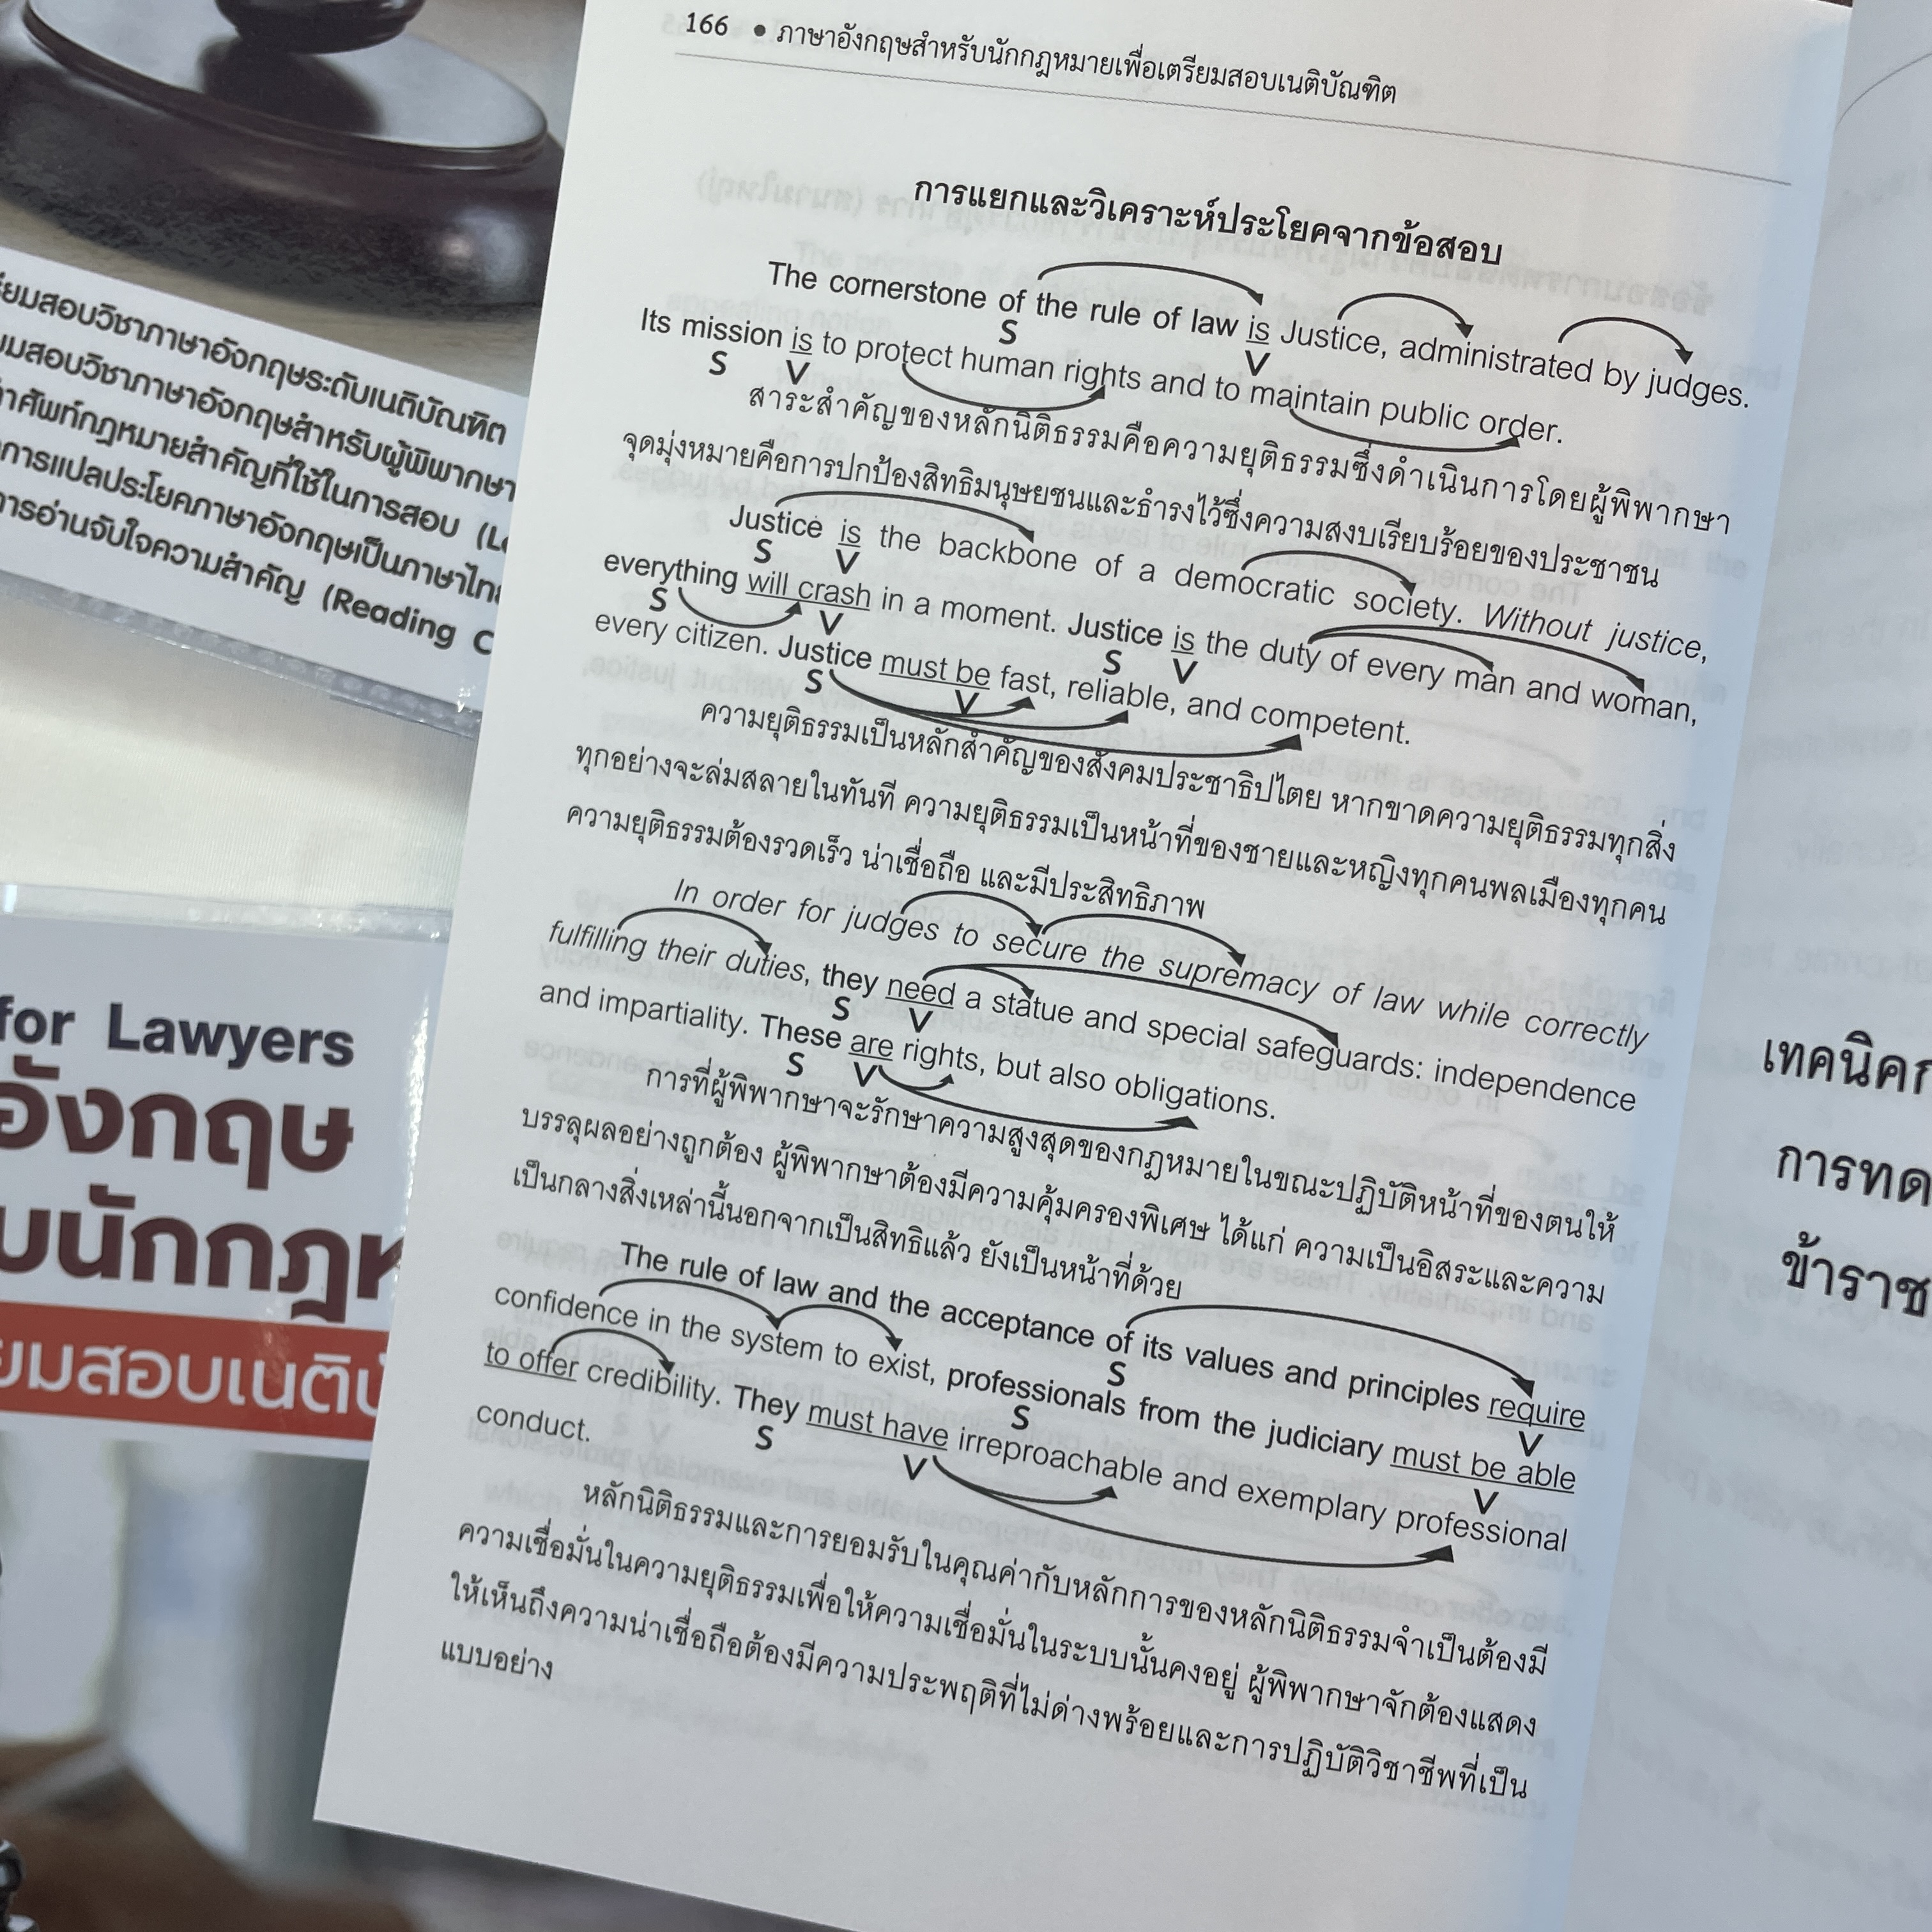 166 • ภาษาอังกฤษสำหรับนักกฎหมายเพื่อเตรียมสอบเนติบัณฑิต
การแยกและวิเคราะห์ประโยคจากข้อสอบ
The cornerstone of the rule of law is Justice, administrated by judges.
S V
Its mission is to protect human rights and to maintain public order.
S V
สาระสำคัญของหลักนิติธรรมคือความยุติธรรมซึ่งดำเนินการโดยผู้พิพากษา
จุดมุ่งหมายคือการปกป้องสิทธิมนุษยชนและธำรงไว้ซึ่งความสงบเรียบร้อยของประชาชน
Justice is the backbone of a democratic society. Without justice,
S V
everything will crash in a moment. Justice is the duty of every man and woman,
S V S V
every citizen. Justice must be fast, reliable, and competent.
S V
ความยุติธรรมเป็นหลักสำคัญของสังคมประชาธิปไตย หากขาดความยุติธรรมทุกสิ่ง
ทุกอย่างจะล่มสลายในทันที ความยุติธรรมเป็นหน้าที่ของชายและหญิงทุกคนพลเมืองทุกคน
ความยุติธรรมต้องรวดเร็ว น่าเชื่อถือ และมีประสิทธิภาพ
In order for judges to secure the supremacy of law while correctly
fulfilling their duties, they need a statue and special safeguards: independence
S V
and impartiality. These are rights, but also obligations.
S V
การที่ผู้พิพากษาจะรักษาความสูงสุดของกฎหมายในขณะปฏิบัติหน้าที่ของตนให้
บรรลุผลอย่างถูกต้อง ผู้พิพากษาต้องมีความคุ้มครองพิเศษ ได้แก่ ความเป็นอิสระและความ
เป็นกลางสิ่งเหล่านี้นอกจากเป็นสิทธิแล้ว ยังเป็นหน้าที่ด้วย
The rule of law and the acceptance of its values and principles require
S V
confidence in the system to exist, professionals from the judiciary must be able
S V
to offer credibility. They must have irreproachable and exemplary professional
S V
conduct.
หลักนิติธรรมและการยอมรับในคุณค่ากับหลักการของหลักนิติธรรมจำเป็นต้องมี
ความเชื่อมั่นในความยุติธรรมเพื่อให้ความเชื่อมั่นในระบบนั้นคงอยู่ ผู้พิพากษาจักต้องแสดง
ให้เห็นถึงความน่าเชื่อถือต้องมีความประพฤติที่ไม่ด่างพร้อยและการปฏิบัติวิชาชีพที่เป็น
แบบอย่าง
สอบวิชาภาษาอังกฤษระดับเนติบัณฑิต
สอบวิชาภาษาอังกฤษสำหรับผู้พิพากษา
ศัพท์กฎหมายสำคัญที่ใช้ในการสอบ
การแปลประโยคภาษาอังกฤษเป็นภาษาไทย
การอ่านจับใจความสำคัญ (Reading
for Lawyers
อังกฤษ
เทคนิค
ข้าราช